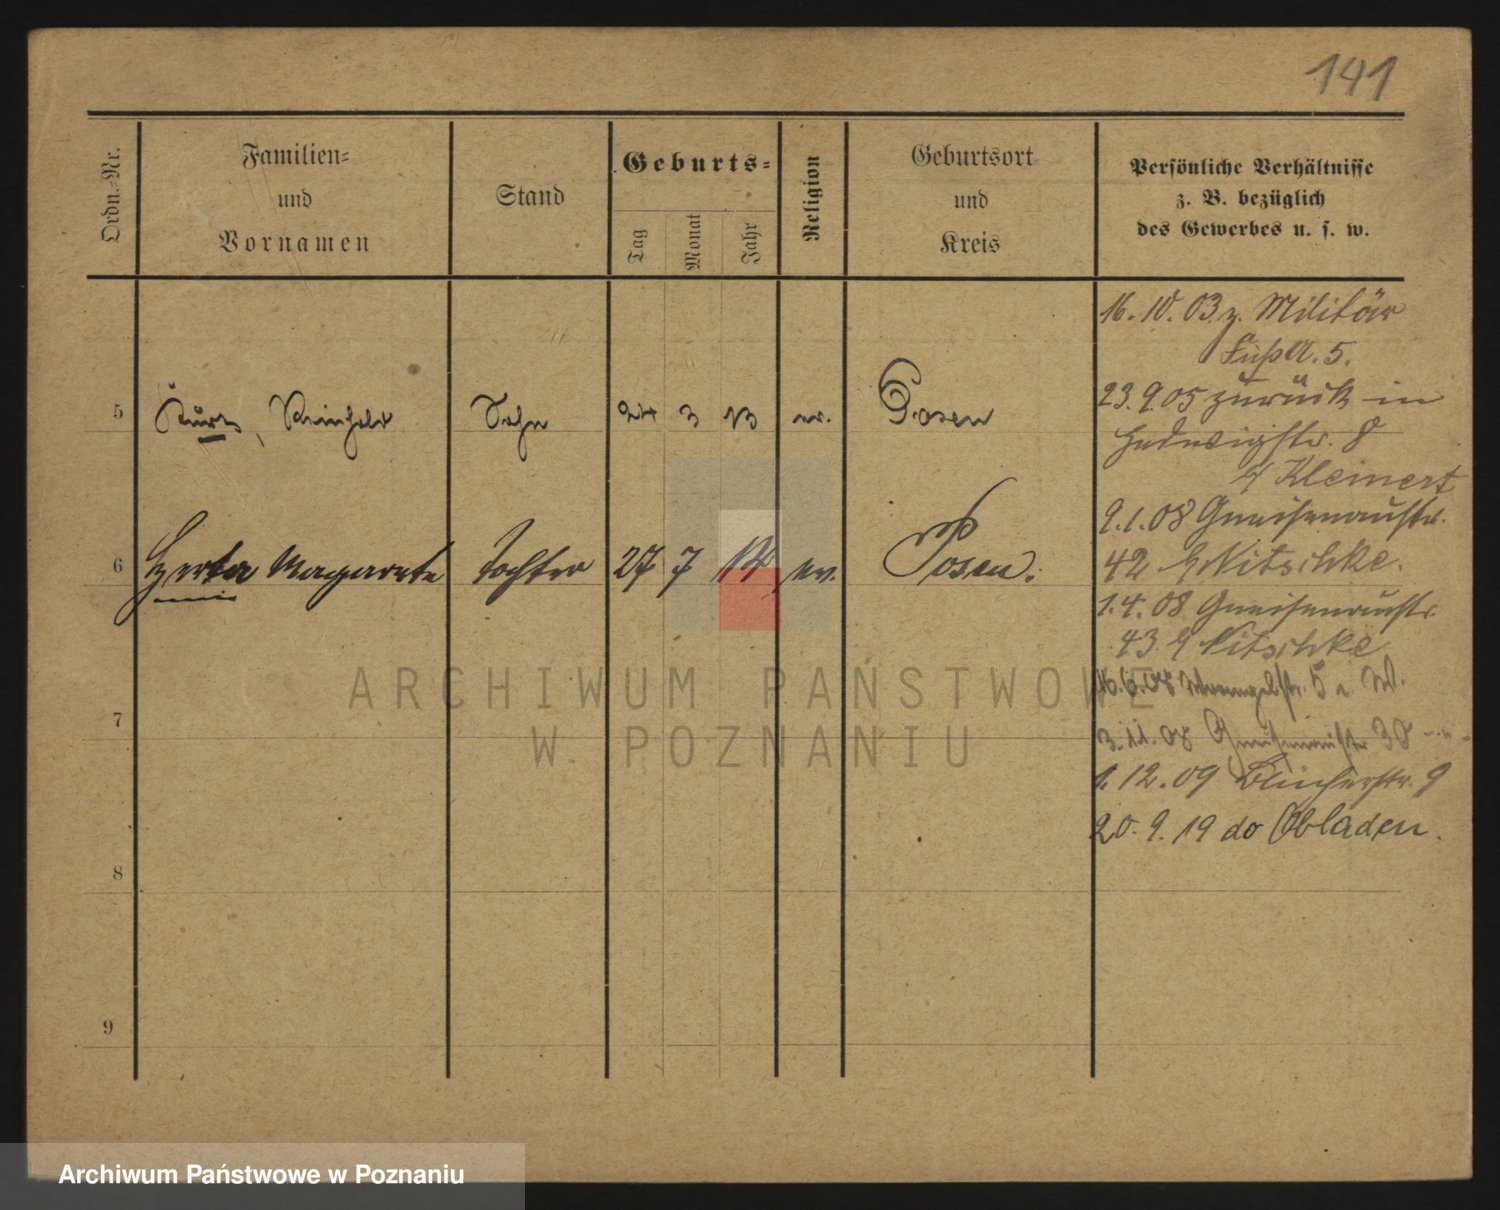 141
Ordn.-Nr.
Familien-
und
Vornamen
Stand
Geburts-
Tag
Monat
Jahr
Religion
Geburtsort
und
Kreis
Persönliche Verhältnisse
z. B. bezüglich
des Gewerbes u. s. w.
5 Kurt, Reinhold Sohn 24 3 13 ev. Posen
6 Herta Magarete Tochter 27 7 14 ev. Posen.
7
8
9
16.10.03 z. Militär
Fußa. 5.
23.9.05 zurück in
Hedwigstr. 8
b/ Kleinert
9.1.08 Gneisenaustr.
42 b/ Nitschke.
1.4.08 Gneisenaustr.
43 b/ Nitschke
16.6.08 Wrangelstr. 5
3.11.08 Gneisenaustr 30
1.12.09 Blücherstr. 9
20.9.19 do Obladen.
ARCHIWUM PAŃSTWOWE
W POZNANIU
Archiwum Państwowe w Poznaniu